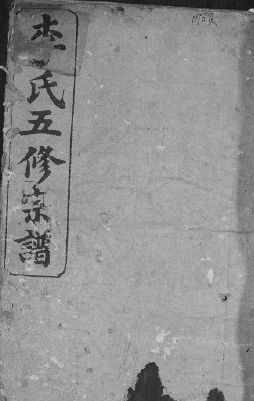 李氏五修宗譜